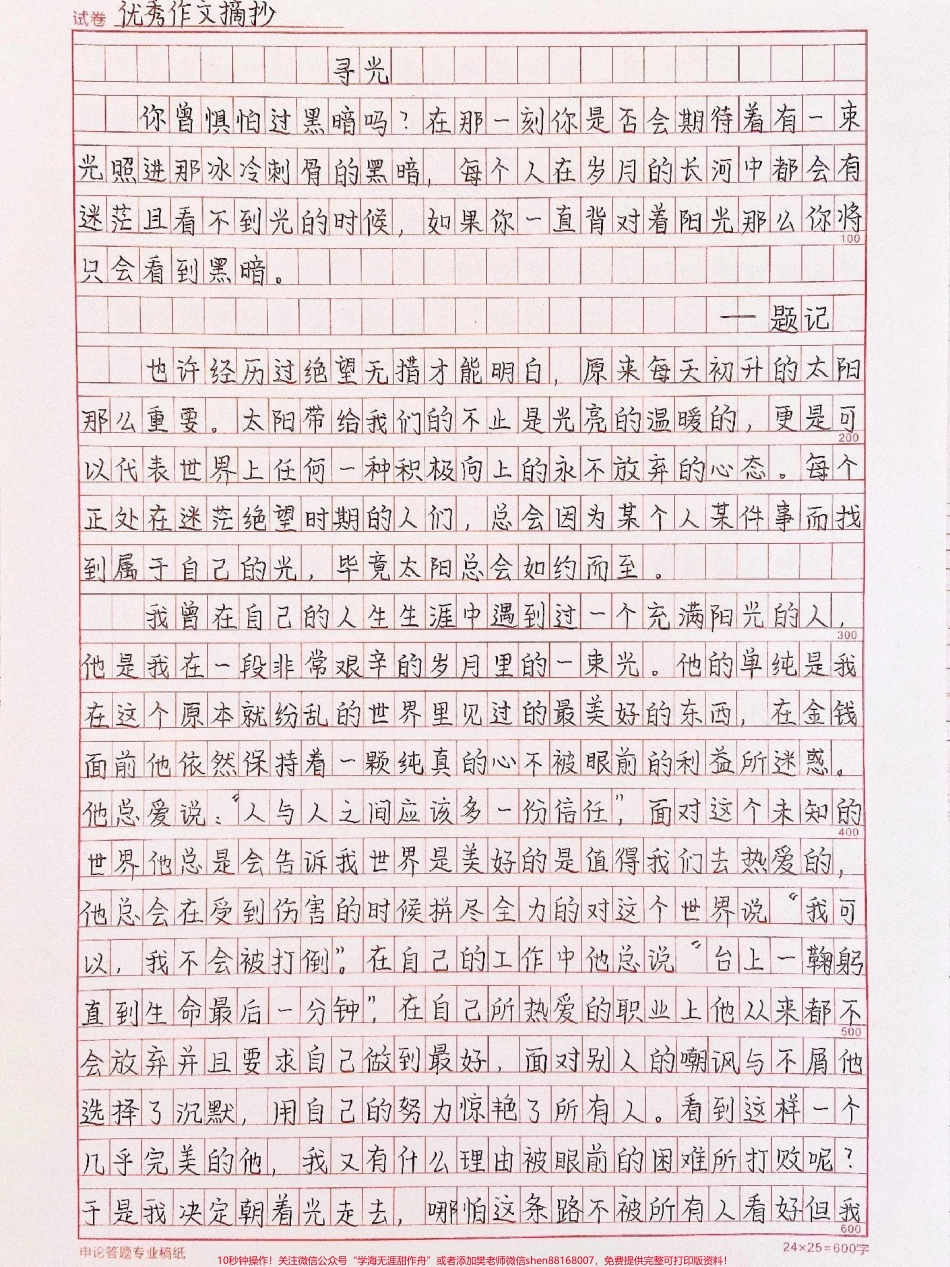 试卷 优秀作文摘抄
寻光
你曾惧怕过黑暗吗？在那一刻你是否会期待着有一束
光照进那冰冷刺骨的黑暗，每个人在岁月的长河中都会有
迷茫且看不到光的时候，如果你一直背对着阳光那么你将
100
只会看到黑暗。
——题记
也许经历过绝望无措才能明白，原来每天初升的太阳
那么重要。太阳带给我们的不止是光亮的温暖的，更是可
200
以代表世界上任何一种积极向上的永不放弃的心态。每个
正处在迷茫绝望时期的人们，总会因为某个人某件事而找
到属于自己的光，毕竟太阳总会如约而至。
我曾在自己的人生生涯中遇到过一个充满阳光的人，
300
他是我在一段非常艰辛的岁月里的一束光。他的单纯是我
在这个原本就纷乱的世界里见过的最美好的东西，在金钱
面前他依然保持着一颗纯真的心不被眼前的利益所迷惑。
他总爱说：“人与人之间应该多一份信任”，面对这个未知的
400
世界他总是会告诉我世界是美好的是值得我们去热爱的，
他总会在受到伤害的时候拼尽全力的对这个世界说“我可
以，我不会被打倒”。在自己的工作中他总说“台上一鞠躬
直到生命最后一分钟”，在自己所热爱的职业上他从来都不
500
会放弃并且要求自己做到最好，面对别人的嘲讽与不屑他
选择了沉默，用自己的努力惊艳了所有人。看到这样一个
几乎完美的他，我又有什么理由被眼前的困难所打败呢？
于是我决定朝着光走去，哪怕这条路不被所有人看好但我
600
申论答题专业稿纸 24×25=600字
10秒钟操作！关注微信公众号“学海无涯甜作舟”或者添加樊老师微信shen88168007，免费提供完整可打印版资料！